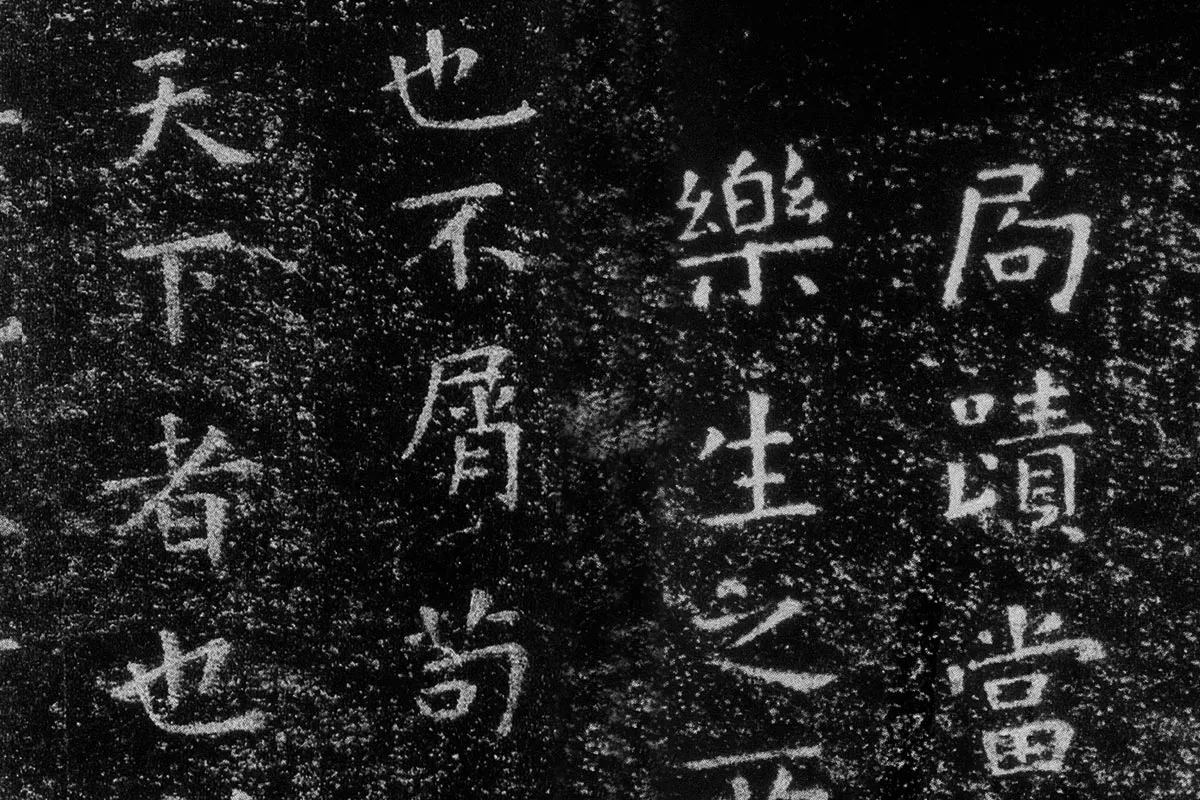 局蹟當
樂生之
也不屑苟
天下者也